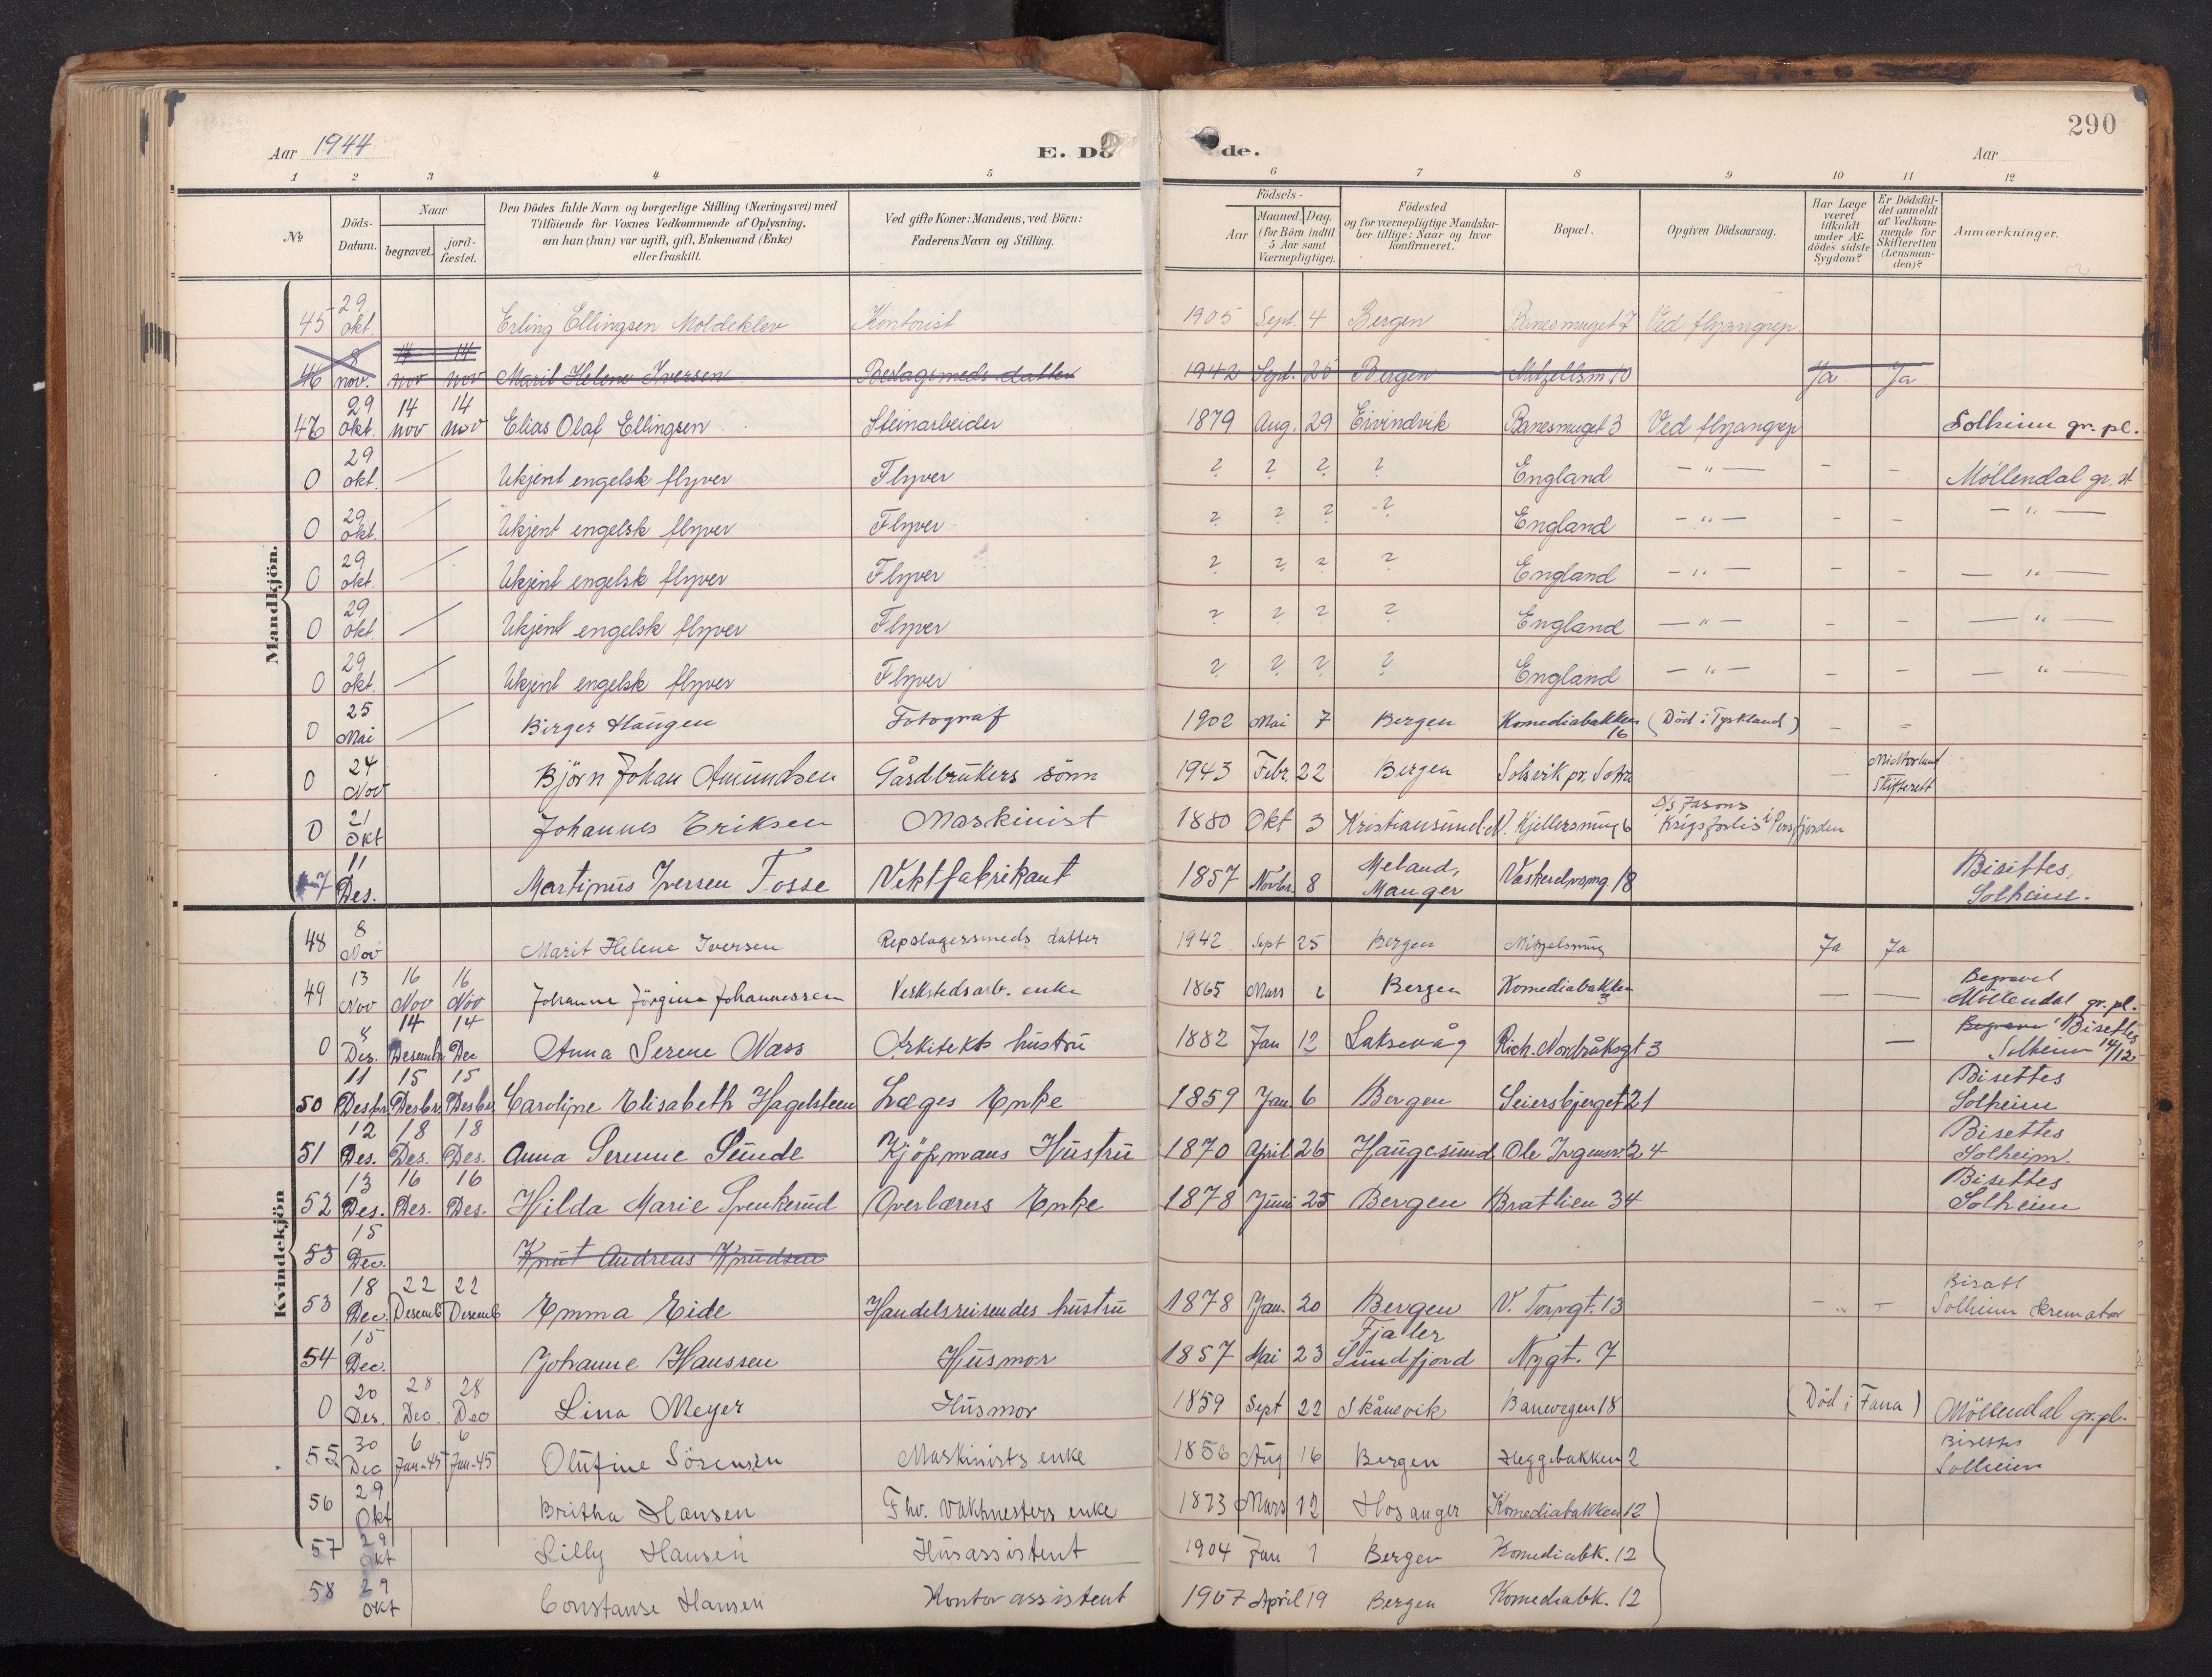 290
Aar 1944
E. Dö de.
Aar
1 2 3 4 5 6 7 8 9 10 11 12
№
Döds-Datum.
Naar
begravet.
jord-fæstet.
Den Dödes fulde Navn og borgerlige Stilling (Næringsvei) med
Tilföiende for Voxnes Vedkommende af Oplysning,
om han (hun) var ugift, gift, Enkemand (Enke)
eller fraskilt.
Ved gifte Koner: Mandens, ved Börn:
Faderens Navn og Stilling.
Födsels-
Aar
Maaned. Dag.
(for Börn indtil
5 Aar samt
Værnepligtige).
Födested
og for værnepligtige Mandska-
ber tillige: Naar og hvor
konfirmeret.
Bopæl.
Opgiven Dödsaarsag.
Har Læge
været
tilkaldt
under Af-
dödes sidste
Sygdom?
Er Dödsfal-
det anmeldt
af Vedkom-
mende for
Skifteretten
(Lensman-
den)?
Anmærkninger.
Mandkjön.
45 29 okt. Erling Ellingsen Moldeklev Kontorist 1905 Sept. 4 Bergen Ved flyangrep
46 8 nov. 14 nov 14 nov Marit Helene Iversen 1942 Sept. 25 Bergen Ja Ja
46 29 okt. 14 nov 14 nov Elias Olaf Ellingsen Steinarbeider 1879 Aug. 29 Eivindvik Ved flyangrep Solheim gr. pl.
0 29 okt. — Ukjent engelsk flyver Flyver ? ? ? ? England — " — - - Möllendal gr.
0 29 okt. — Ukjent engelsk flyver Flyver ? ? ? ? England — " — - - — " —
0 29 okt. — Ukjent engelsk flyver Flyver ? ? ? ? England — " — - - — " —
0 29 okt. — Ukjent engelsk flyver Flyver ? ? ? ? England — " — - - — " —
0 29 okt. — Ukjent engelsk flyver Flyver ? ? ? ? England — " — - - — " —
0 25 Mai — Birger Haugen Fotograf 1902 Mai 7 Bergen Komediabakken 16 (Död i Tyskland) - -
0 24 Nov Björn Johan Amundsen Gårdbrukers sönn 1943 Febr. 22 Bergen Solsvik pr. Sotra — Midhordland Skifterett
0 21 Okt Johannes Eriksen Maskinist 1880 Okt 3 Kristiansund N. Kjellersmug 6 Krigsforlis i
47 11 Des. Martinus Iversen Fosse Vektfabrikant 1857 Novbr. 8 Meland, Manger Vaskerelvsmg 18 Bisettes, Solheim.
Kvindekjön
48 8 Nov Marit Helene Iversen Repslagersmeds datter 1942 Sept 25 Bergen Ja Ja
49 13 Nov 16 Nov 16 Nov Johanne Jörgine Johannessen Verkstedsarb. enke 1865 Mars 6 Bergen Komediabakken 3 — — Begravet Möllendal gr. pl.
0 8 Des. 14 Desemb 14 Dec Anna Serene Næss Arkitekts hustru 1882 Jan 12 Laksevåg Rich. Nordråksgt 3 — Begraves Bisettes Solheim 14/12
50 11 Desbr 15 Desbr. 15 Desbr. Caroline Elisabeth Hagelsteen Læges Enke 1859 Jan. 6 Bergen Seiersbjerget 21 Bisettes Solheim
51 12 Des. 18 Des. 18 Des. Anna Serene Sunde Kjöpmans Hustru 1870 April 26 Haugesund 24 Bisettes Solheim.
52 13 Des. 16 Des. 16 Des. Hilda Marie Svenkerud Overlærers Enke 1878 Juni 25 Bergen Bratlien 34 Bisettes Solheim
53 15 Dec. Knut Andreas Knudsen
53 18 Dec. 22 Desemb 22 Desemb Emma Eide Handelsreisendes hustru 1878 Jan. 20 Bergen V. Torvgt. 13 - " - Bisatt Solheim Kremator
54 15 Dec. Johanne Hanssen Husmor 1857 Mai 23 Fjaler Sundfjord Nygt. 7
0 20 Des. 28 Dec. 28 Dec Lina Meyer Husmor 1859 Sept 22 Skånevik Banevegen 18 (Död i Fana) Möllendal gr.pl.
55 30 Dec 6 Jan-45 6 Jan-45 Olufine Sörensen Maskinists enke 1856 Aug 16 Bergen Heggebakken 2 Bisettes Solheim
56 29 Okt Britha Hansen Fhv. Vaktmesters enke 1873 Mars 12 Hosanger Komediabakken 12
57 29 Okt Lilly Hansen Husassistent 1904 Jan 1 Bergen Komediabk. 12
58 29 Okt Constanse Hansen Kontorassistent 1907 April 19 Bergen Komediabk. 12